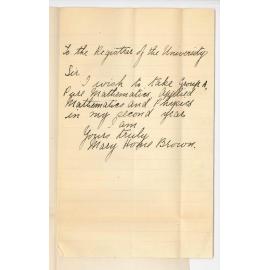 To the Registrar of the University
Sir
I wish to take Group A,
Pure Mathematics, Applied
Mathematics and Physics
in my second year
I am
Yours truly
Mary Home Brown.